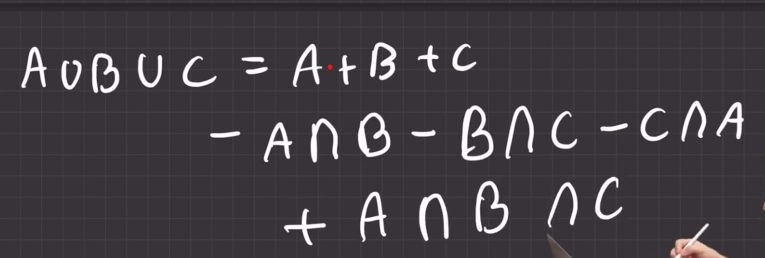 A∪B∪C = A+B+C
- A∩B - B∩C - C∩A
+ A∩B∩C